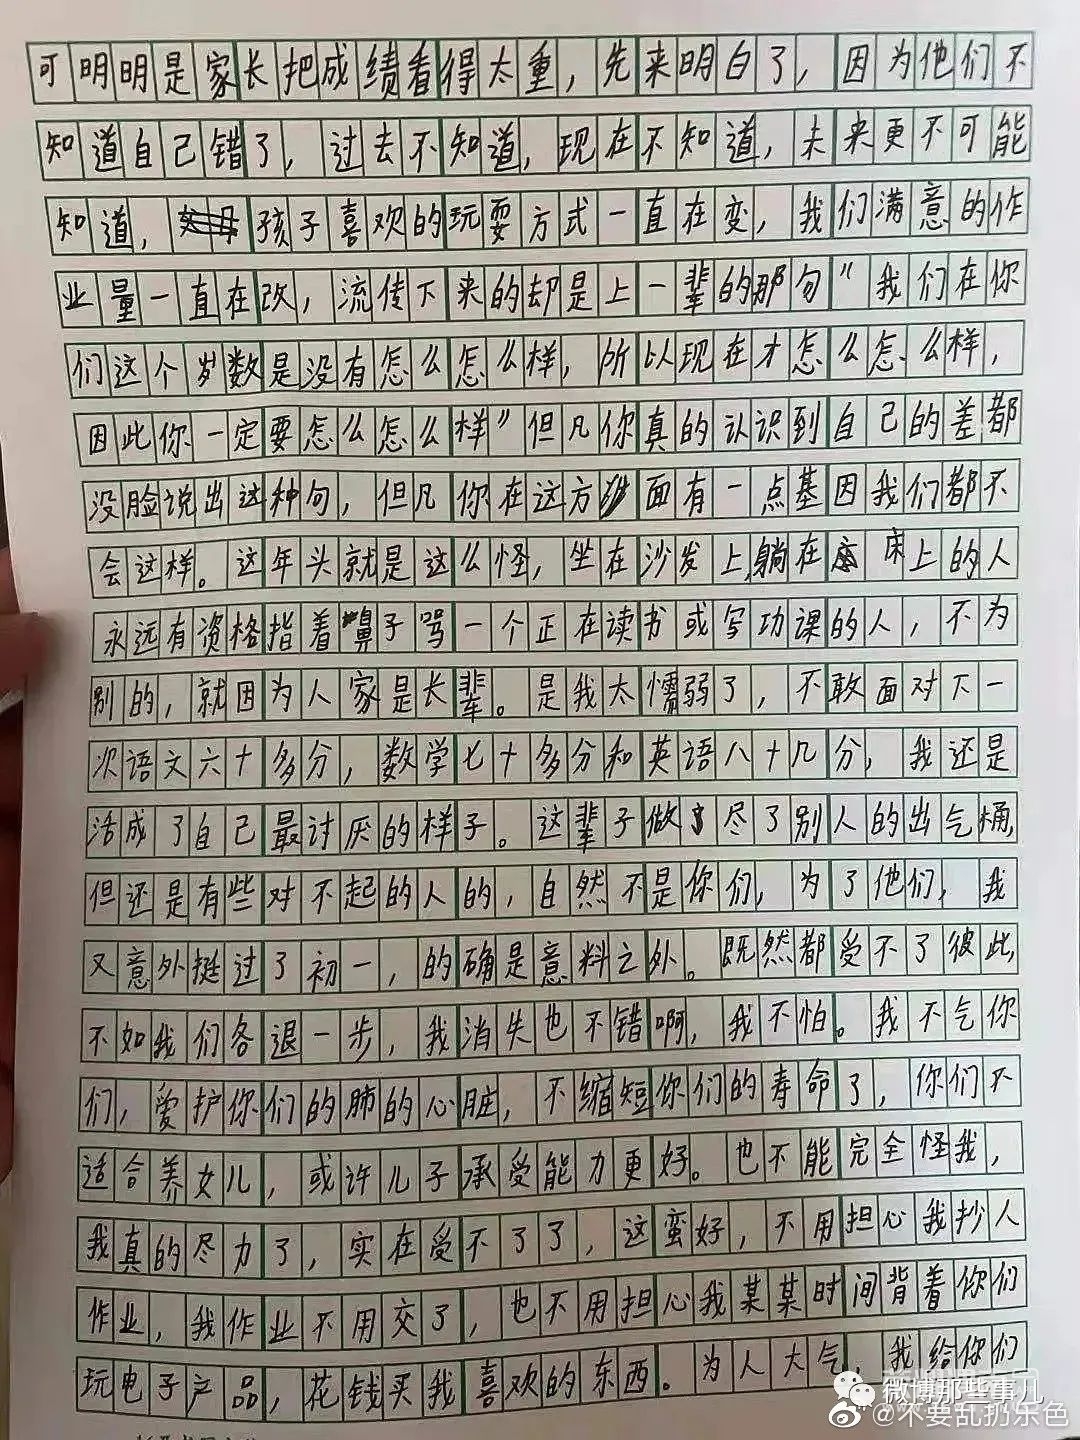 可明明是家长把成绩看得太重，先来明白了，因为他们不
知道自己错了，过去不知道，现在不知道，未来更不可能
知道，孩子喜欢的玩耍方式一直在变，我们满意的作
业量一直在改，流传下来的却是上一辈的那句"我们在你
们这个岁数是没有怎么怎么样，所以现在才怎么怎么样，
因此你一定要怎么怎么样"但凡你真的认识到自己的差都
没脸说出这种句，但凡你在这方面有一点基因我们都不
会这样。这年头就是这么怪，坐在沙发上，躺在床上的人
永远有资格指着鼻子骂一个正在读书或写功课的人，不为
别的，就因为人家是长辈。是我太懦弱了，不敢面对下一
次语文六十多分，数学七十多分和英语八十几分，我还是
活成了自己最讨厌的样子。这辈子做尽了别人的出气桶，
但还是有些对不起的人的，自然不是你们，为了他们，我
又意外挺过了初一，的确是意料之外。既然都受不了彼此，
不如我们各退一步，我消失也不错啊，我不怕。我不气你
们，爱护你们的肺的心脏，不缩短你们的寿命了，你们不
适合养女儿，或许儿子承受能力更好。也不能完全怪我，
我真的尽力了，实在受不了了，这蛮好，不用担心我抄人
作业，我作业不用交了，也不用担心我某某时间背着你们
玩电子产品，花钱买我喜欢的东西。为人大气，我给你们
微博那些事儿
@不要乱扔乐色